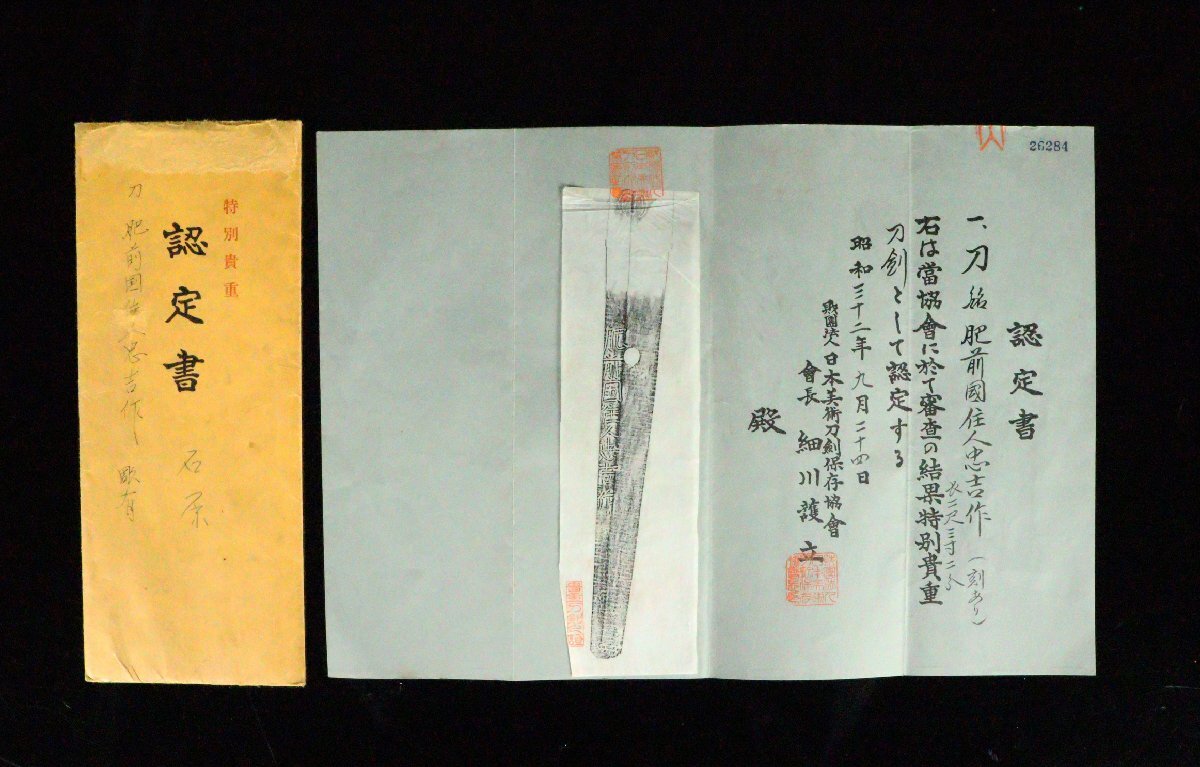 特別貴重
認定書
刀 肥前国住人忠吉作
石原
26284
認定書
一、刀 銘 肥前國住人忠吉作
長二尺三寸二分
右は當協會に於て審査の結果特別貴重
刀劍として認定する
昭和三十二年九月二十四日
財團法人日本美術刀劍保存協會
會長 細川護立
殿
肥前國住人忠吉作